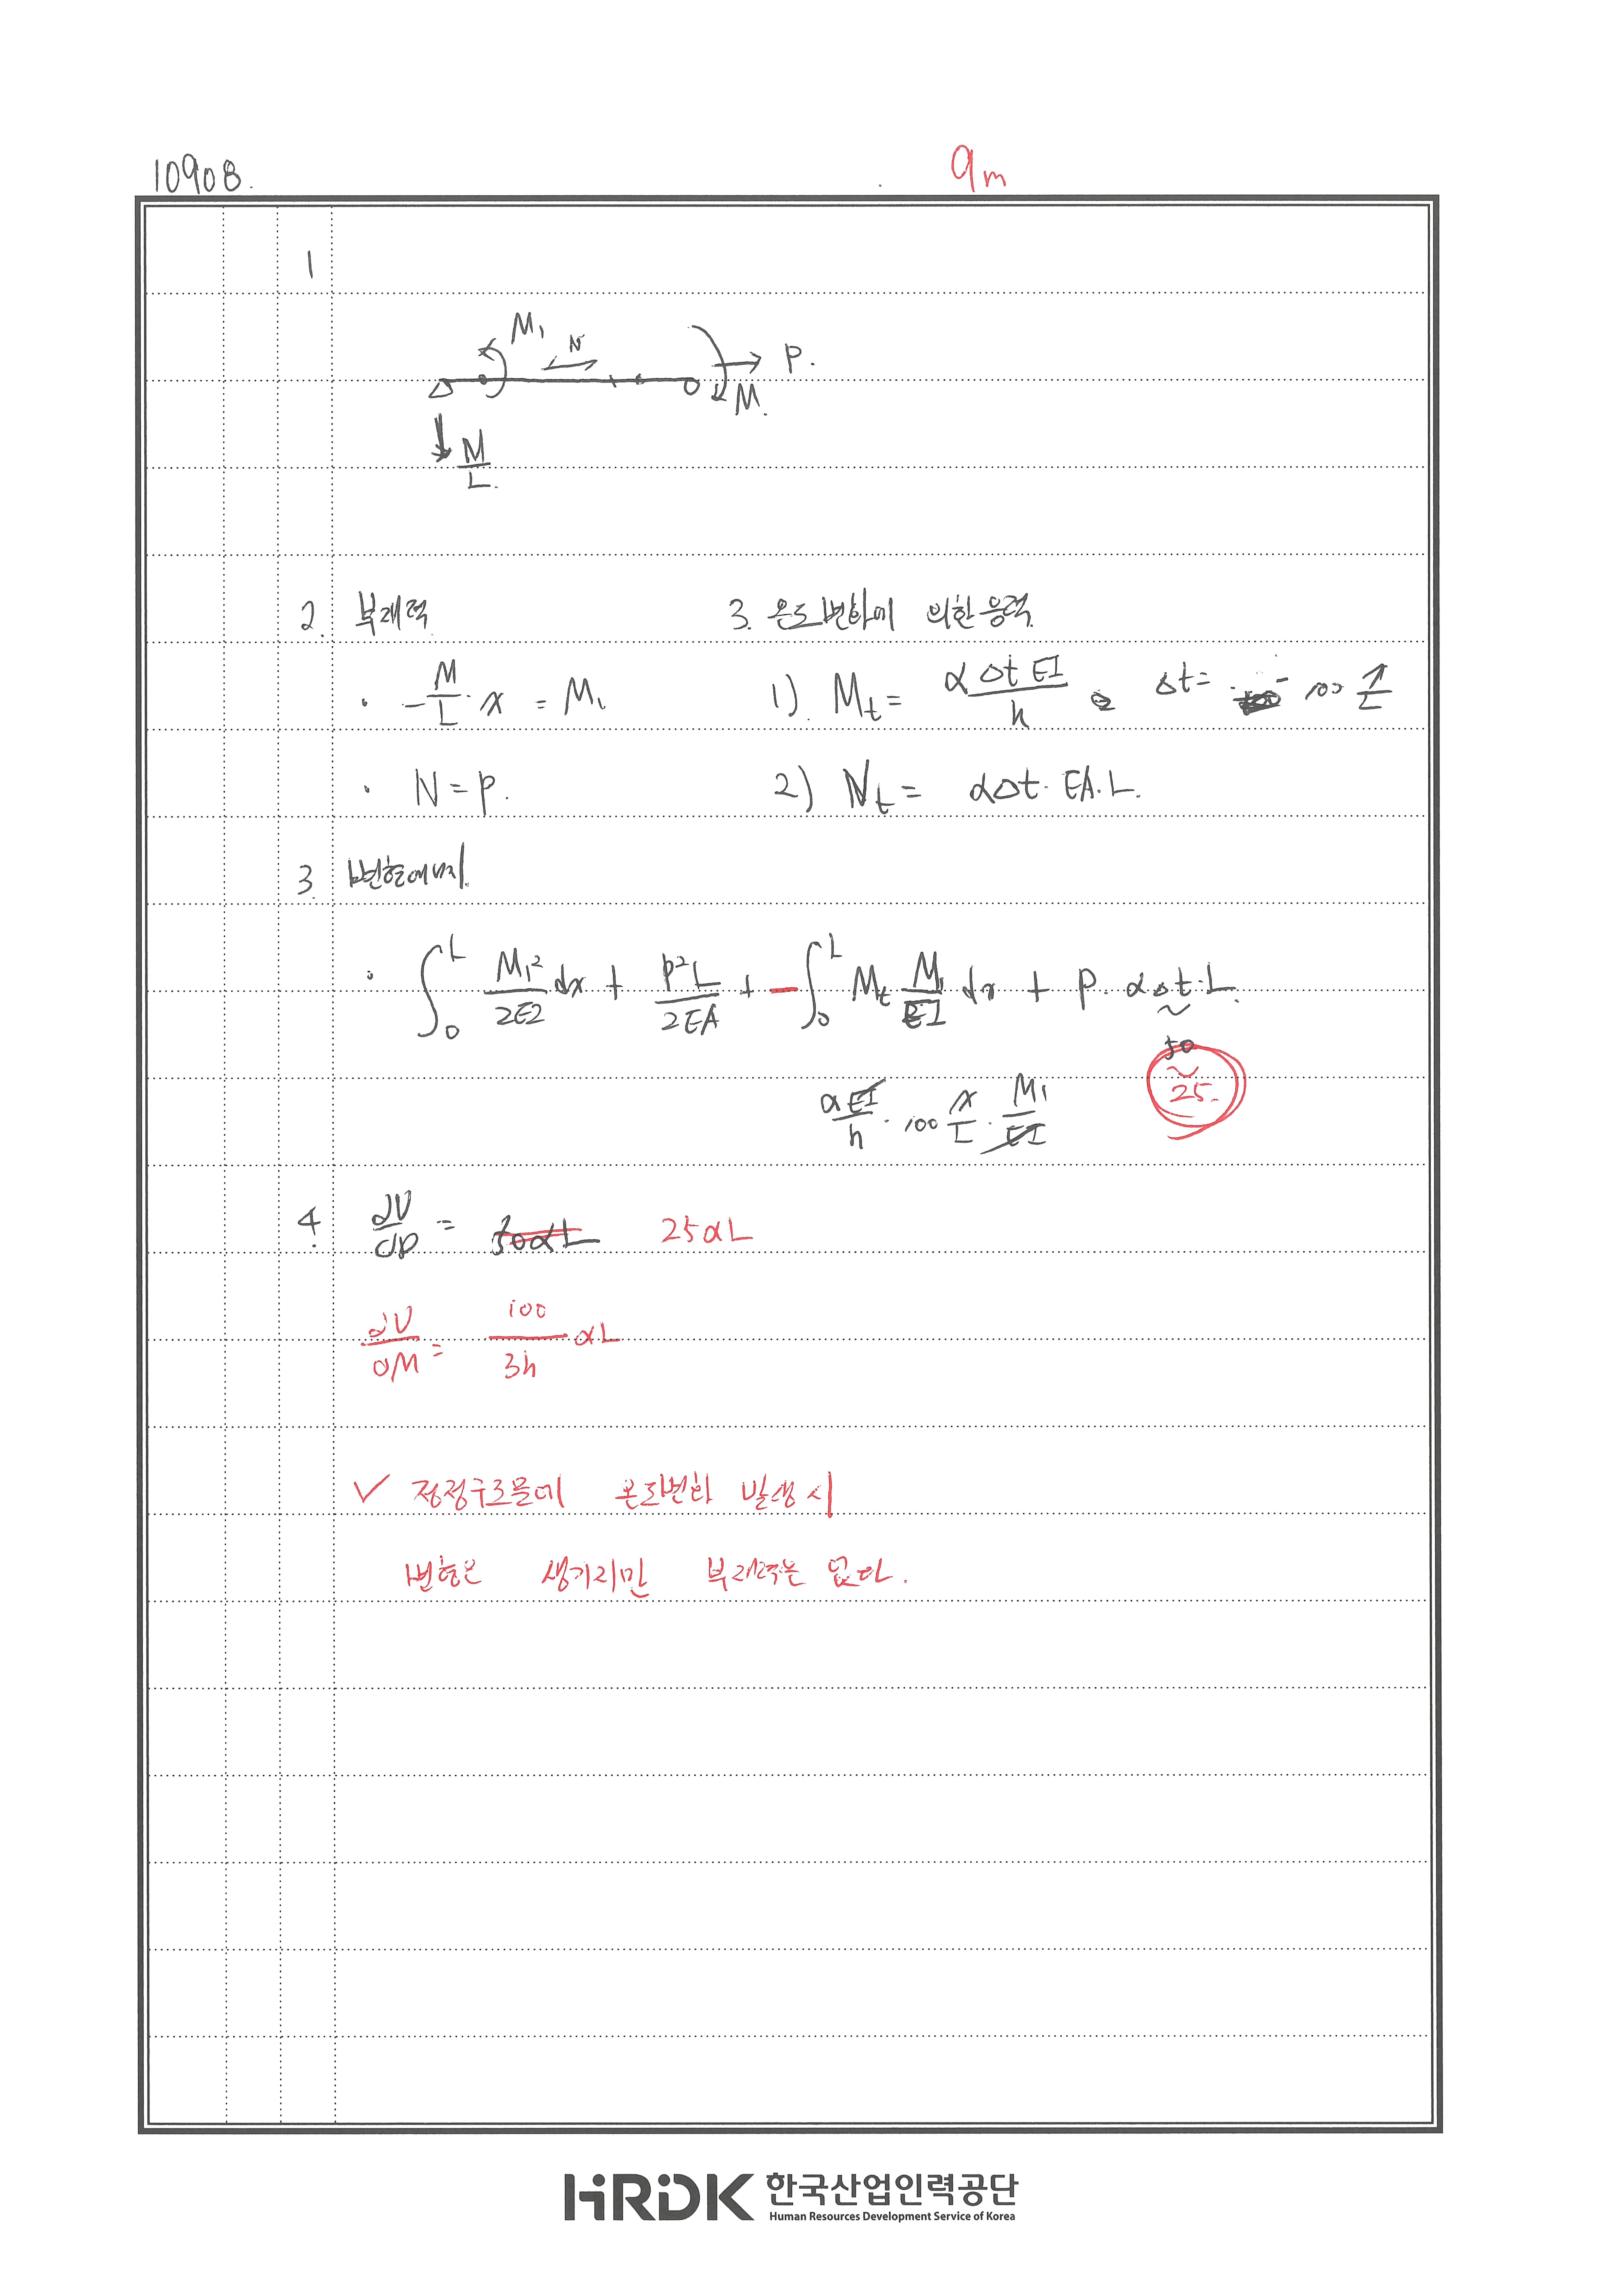 10908.
9m
1
M₁ N P.
M.
M/L.
2. 부재력
· -M/L · x = M₁
· N = P.
3. 온도변화에 의한 응력
1) Mt = αΔt EI / h Δt = 100
2) Nt = αΔt · EA · L.
3. 변형에너지
· ∫₀ᴸ M₁²/2EI dx + P²L/2EA + - ∫₀ᴸ Mt M₁/EI dx + P · αΔt · L.
50
25.
αEI/h · 100 x/L · M₁/EI
4. ∂U/∂P = 50αL 25αL
∂U/∂M = 100/3h αL
✓ 정정구조물에 온도변화 발생 시
변형은 생기지만 부재력은 없다.
HRDK 한국산업인력공단
Human Resources Development Service of Korea